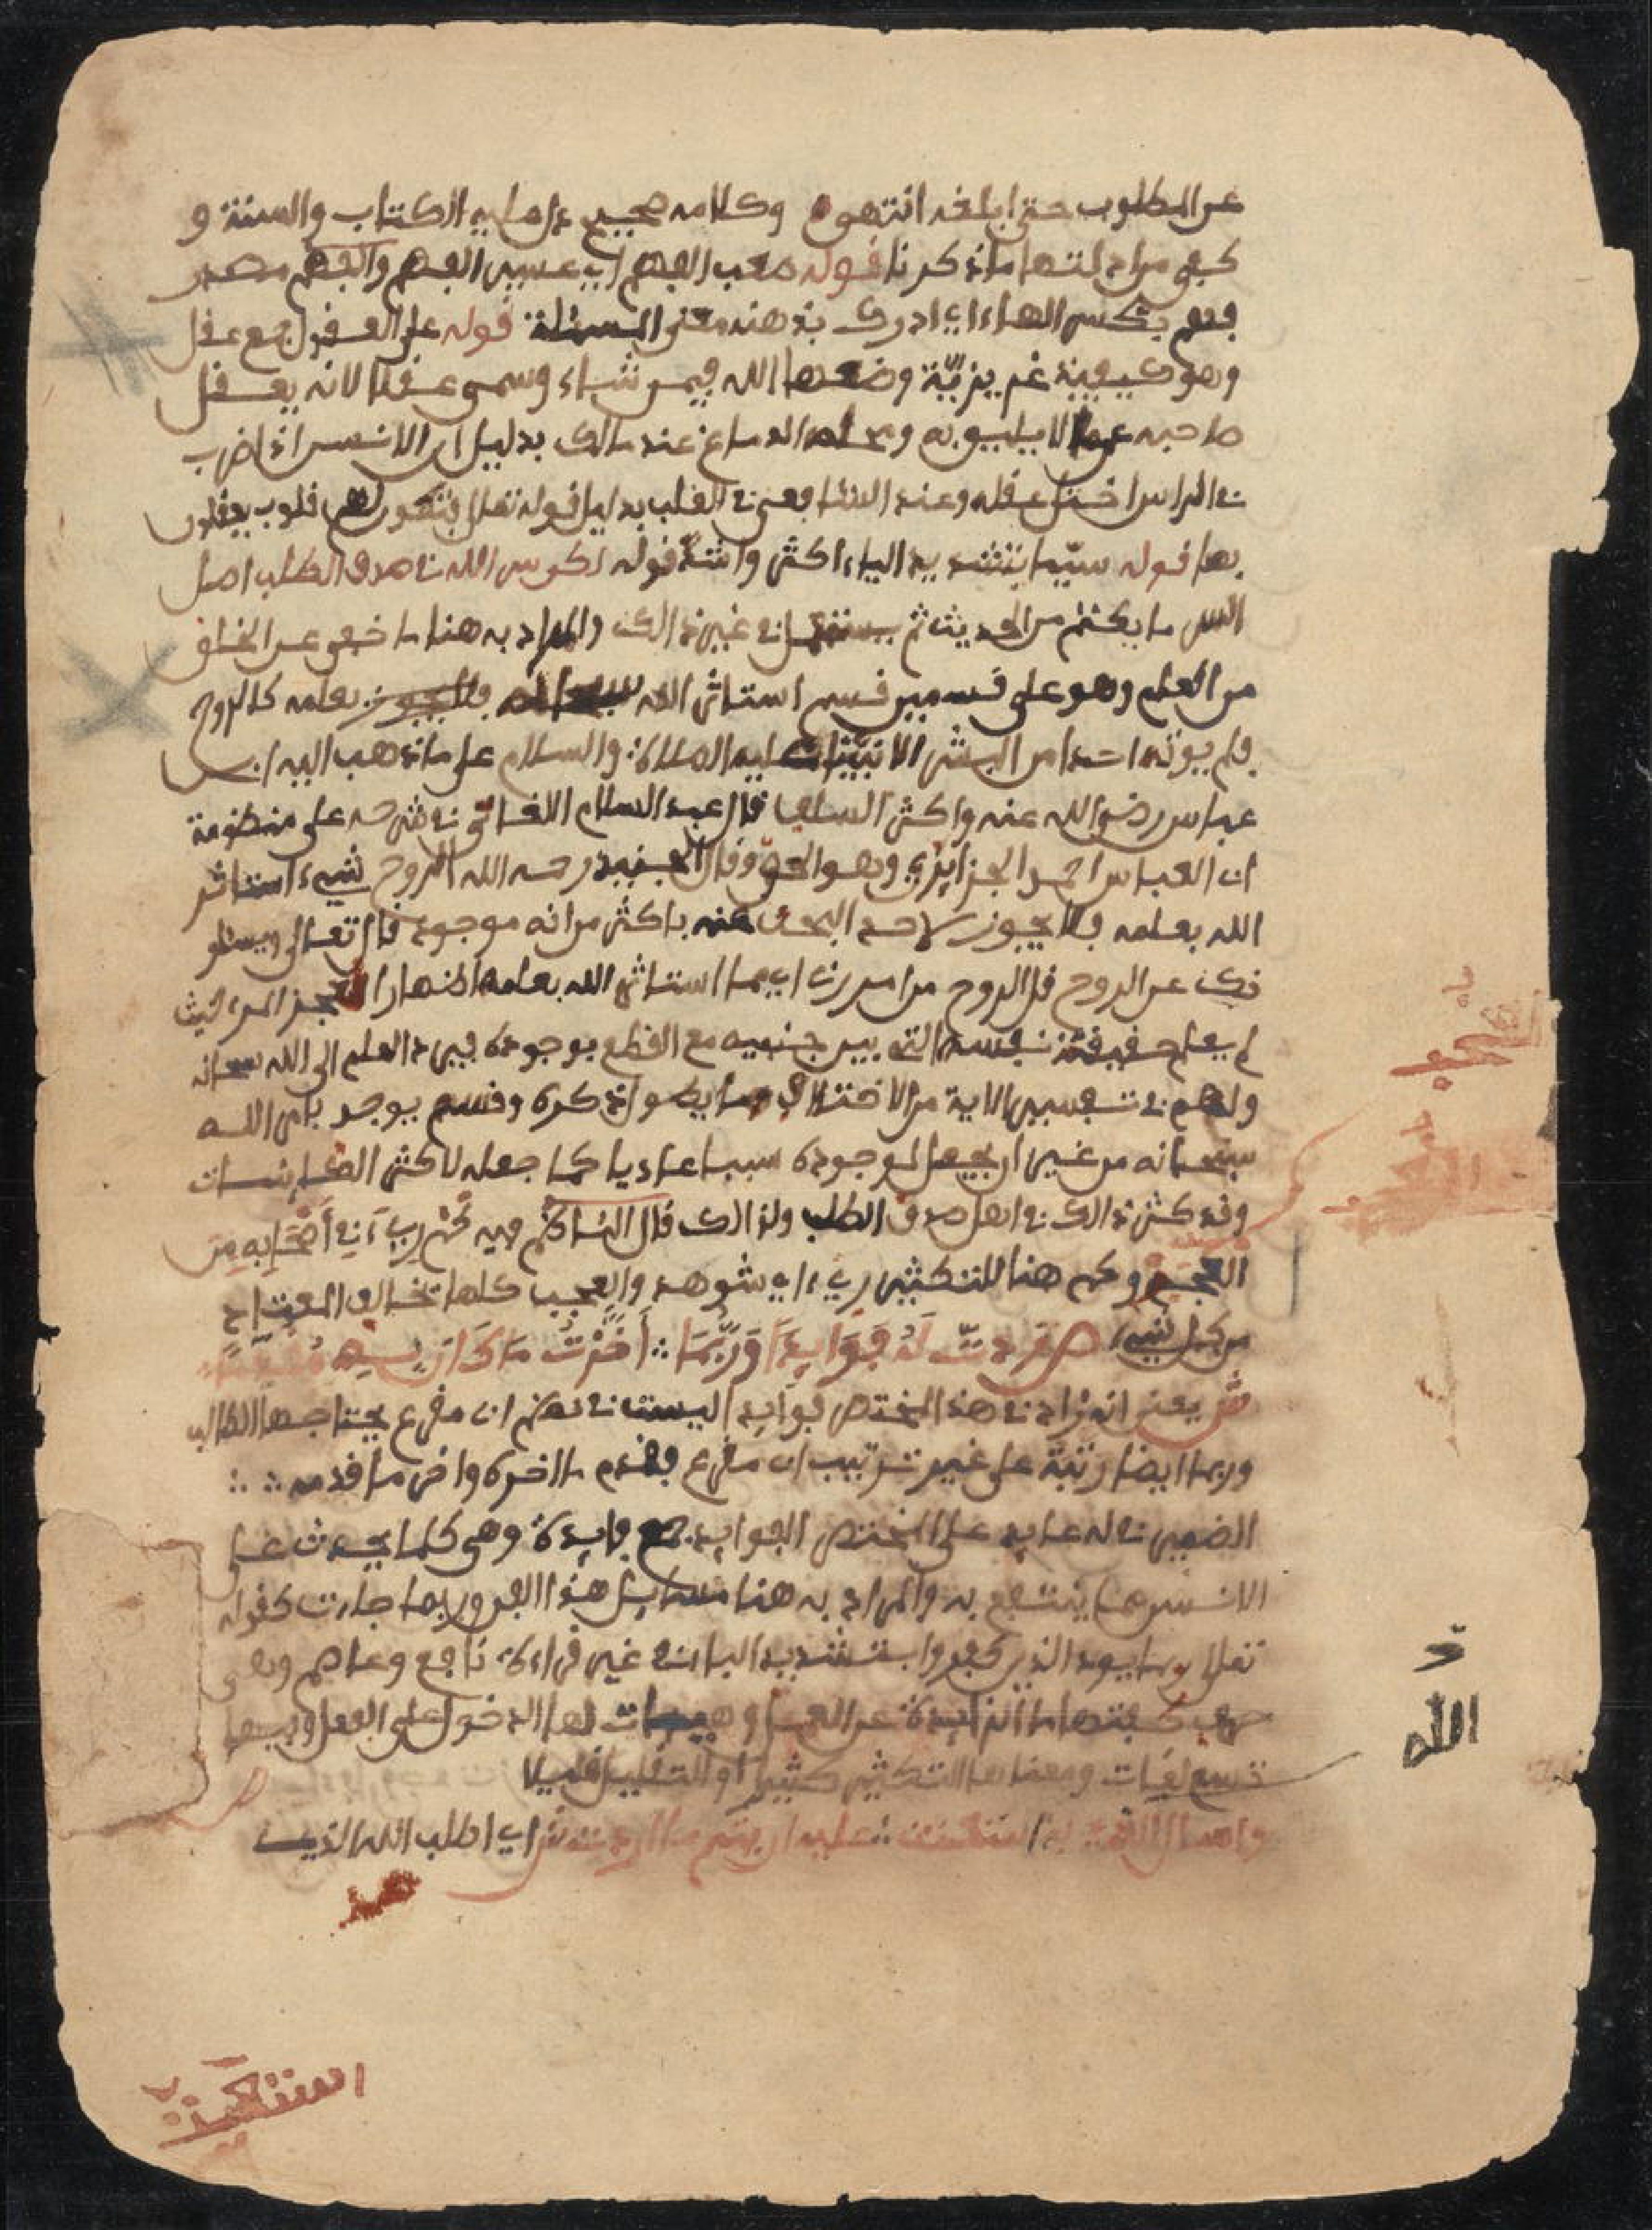 عن المطلوب حتى ابلغه انتهى وكلامه صحيح دل عليه الكتاب والسنة و
كفى من ادلتها ما ذكرنا قوله صعب الفهم اي عسير الفهم والفهم مصدر
فهم بكسر الهاء اي ادرك بذهنه معنى المسئلة قوله على العقول جمع عقل
وهو كيفية غريزيّة وضعها الله فيمن شاء وسمى عقلا لانه يعقل
صاحبه عما لا يليق به ومحله الدماغ عند مالك بدليل ان الانسن اذا ضرب
في الراس اختل عقله وعند الشافعى في القلب بدليل قوله تعلى فتكون لهم قلوب يعقلون
بها قوله سيّما بتشديد الياء اكثر واشدّ قوله ذكر سر الله في صدق الطلب اصل
السر ما يكتم من الحديث ثم يستعمل في غير ذالك والمراد به هنا ما خفى عن الخلق
من العلم وهو على قسمين قسم استاثر الله بعلمه كالروح
فلم يوته احدا من البشر الا نبيّنا عليه الصلاة والسلام على ما ذهب اليه ابن
عباس رضي الله عنه واكثر السلف قال عبد السلام اللقانّي في شرحه على منظومة
ابى العباس احمد الجزايري وهو الحق وقال الجنيد رحمه الله الروح شيء استاثر
الله بعلمه فلا يجوز لاحد البحث عنه باكثر من انه موجود قال تعالى ويسئلو
نك عن الروح قل الروح من امر ربي اي مما استاثر الله بعلمه اظهارا لعجز المرء حيث
لم يعلم حقيقة نفسه التي بين جنبيه مع القطع بوجوده فيرد العلم الى الله سبحانه
ولهم في تفسير الاية من الاختلاف ما يطول ذكره وقسم يوجد بامر الله
سبحانه من غير ان يجعل لوجوده سببا عاديا كما جعله لاكثر الكائنات
وقد كثر ذالك في اهل صدق الطلب ولذالك قال الناظم فيه كم ريء في أصحابه من
العجب وكم هنا للتكثير ريء اي شوهد والعجب كلما خالف المعتاد
من كل شيء ص قد زدت له فوايدا وربّما ∴ أخّرت ما كان لديه مقدّما
ش يعنى انه زاد في هذا المختصر فوايد ليست في نظم ابن مقرع يحتاجها الطالب
وربما ايضا رتبه على غير ترتيب ابن مقرع فقدم ما اخره واخر ما قدمه ∴ ∴
الضمير في له عايد على المختصر الفوايد جمع فايدة وهى كلما يحدث على
الانسن مما ينتفع به والمراد به هنا مسايل هذا الفن وربما جارت كقوله
تعلى ربما يود الذين كفروا بتشديد الباء في غير قراءة نافع وعاصم وهى
حرف كفتها ما الزايدة عن العمل وهيات لها الدخول على الفعل وفيها
تسع لغات ومعناها التكثير كثيرا او التقليل قليلا
واسال الله عليه ان يتم ما اردت ش اي اطلب الله الذي
الله